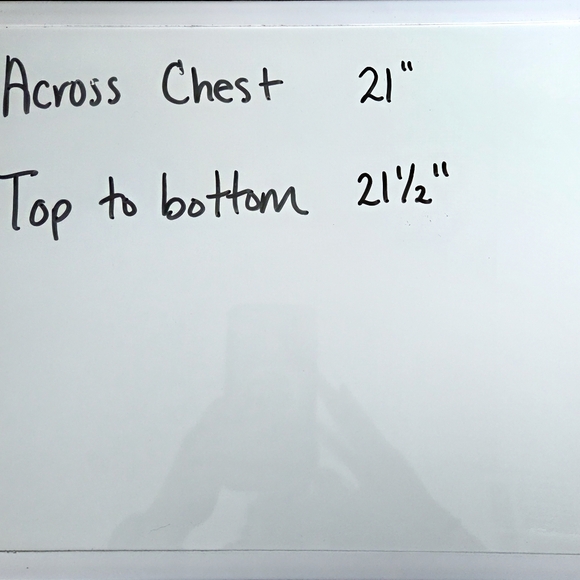 Across Chest 21"
Top to bottom 21½"